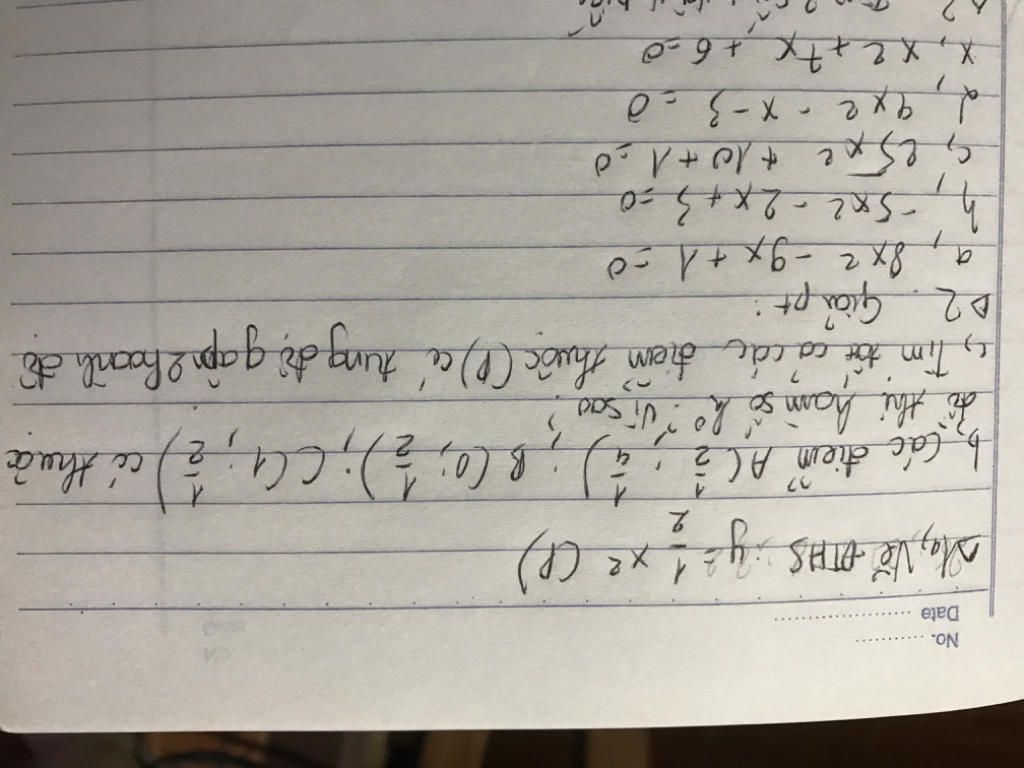 No.
Date
a, Vẽ ĐTHS : y = 1/2 x2 (P)
b, Các điểm A (1/2 ; 1/4) ; B (0 ; 1/2) ; C (1 ; 1/2) có thuộc
đồ thị hàm số ko. Vì sao
c, Tìm tất cả các điểm thuộc (P) có tung độ gấp 2 hoành độ
D2 Giải pt :
a, 8x2 - 9x + 1 = 0
h, -5x2 - 2x + 3 = 0
c, 25x2 + 10 + 1 = 0
d, 4x2 - x - 3 = 0
x, x2 + 7x + 6 = 0